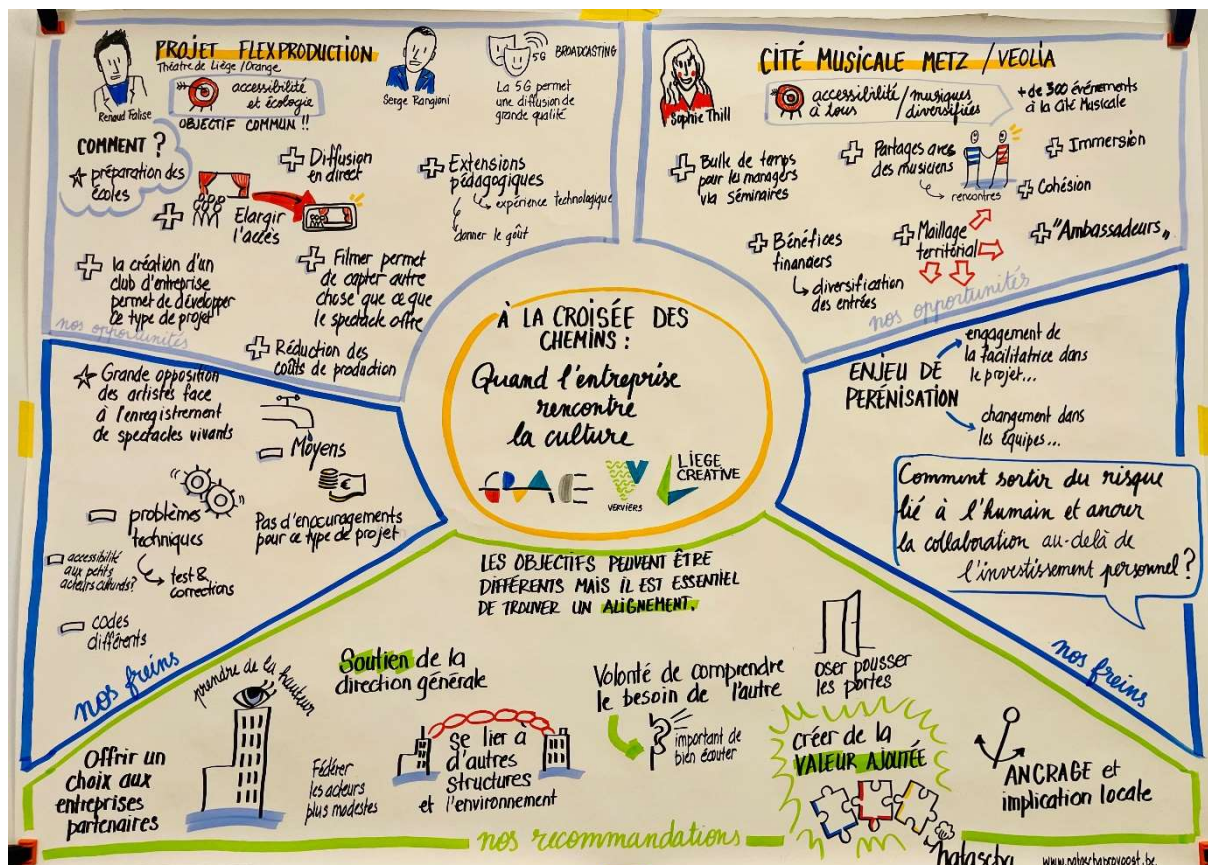 PROJET FLEXPRODUCTION
Théatre de Liège / Orange
Renaud Falise
accessibilité
et écologie
OBJECTIF COMMUN !!
Serge Rangioni
5G
BROADCASTING
La 5G permet
une diffusion de
grande qualité
COMMENT ?
préparation des
écoles
Elargir
l'accès
Diffusion
en direct
Extensions
pédagogiques
expérience technologique
donner le goût
la création d'un
club d'entreprise
permet de développer
ce type de projet
Filmer permet
de capter autre
chose que ce que
le spectacle offre
Réduction des
coûts de production
nos opportunités
CITÉ MUSICALE METZ / VEOLIA
Sophie Thill
accessibilité
à tous
/ musiques
diversifiées
+ de 300 événements
à la Cité Musicale
Bulle de temps
pour les managers
via séminaires
Partages avec
des musiciens
rencontres
Immersion
Cohésion
Bénéfices
financiers
diversification
des entrées
Maillage
territorial
"Ambassadeurs"
nos opportunités
À LA CROISÉE DES
CHEMINS :
Quand l'entreprise
rencontre
la culture
VERVIERS
LIEGE
CREATIVE
Grande opposition
des artistes face
à l'enregistrement
de spectacles vivants
Moyens
problèmes
techniques
test &
corrections
Pas d'encouragements
pour ce type de projet
accessibilité
aux petits
acteurs culturels?
codes
différents
nos freins
ENJEU DE
PERÉNISATION
engagement de
la facilitatrice dans
le projet...
changement dans
les équipes...
Comment sortir du risque
lié à l'humain et ancrer
la collaboration au-delà de
l'investissement personnel ?
nos freins
LES OBJECTIFS PEUVENT ÊTRE
DIFFÉRENTS MAIS IL EST ESSENTIEL
DE TROUVER UN ALIGNEMENT.
Offrir un
choix aux
entreprises
partenaires
prendre de la hauteur
Soutien de la
direction générale
Fédérer
les acteurs
plus modestes
se lier à
d'autres
structures
et l'environnement
Volonté de comprendre
le besoin de l'autre
important de
bien écouter
oser pousser
les portes
créer de la
VALEUR AJOUTÉE
ANCRAGE et
implication locale
nos recommandations
natascha
www.nataschaprovoost.be